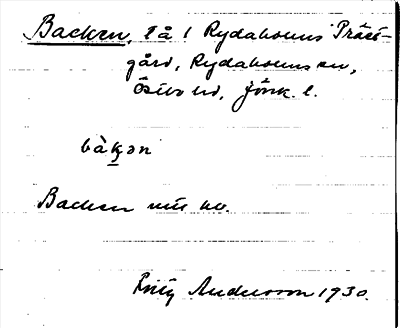 Backen, rå i Rydaholms Präst-
gård, Rydaholms sn,
Östbo hd, Jönk. l.
bàk̬ən
Backen
Fritz Andersson 1930.